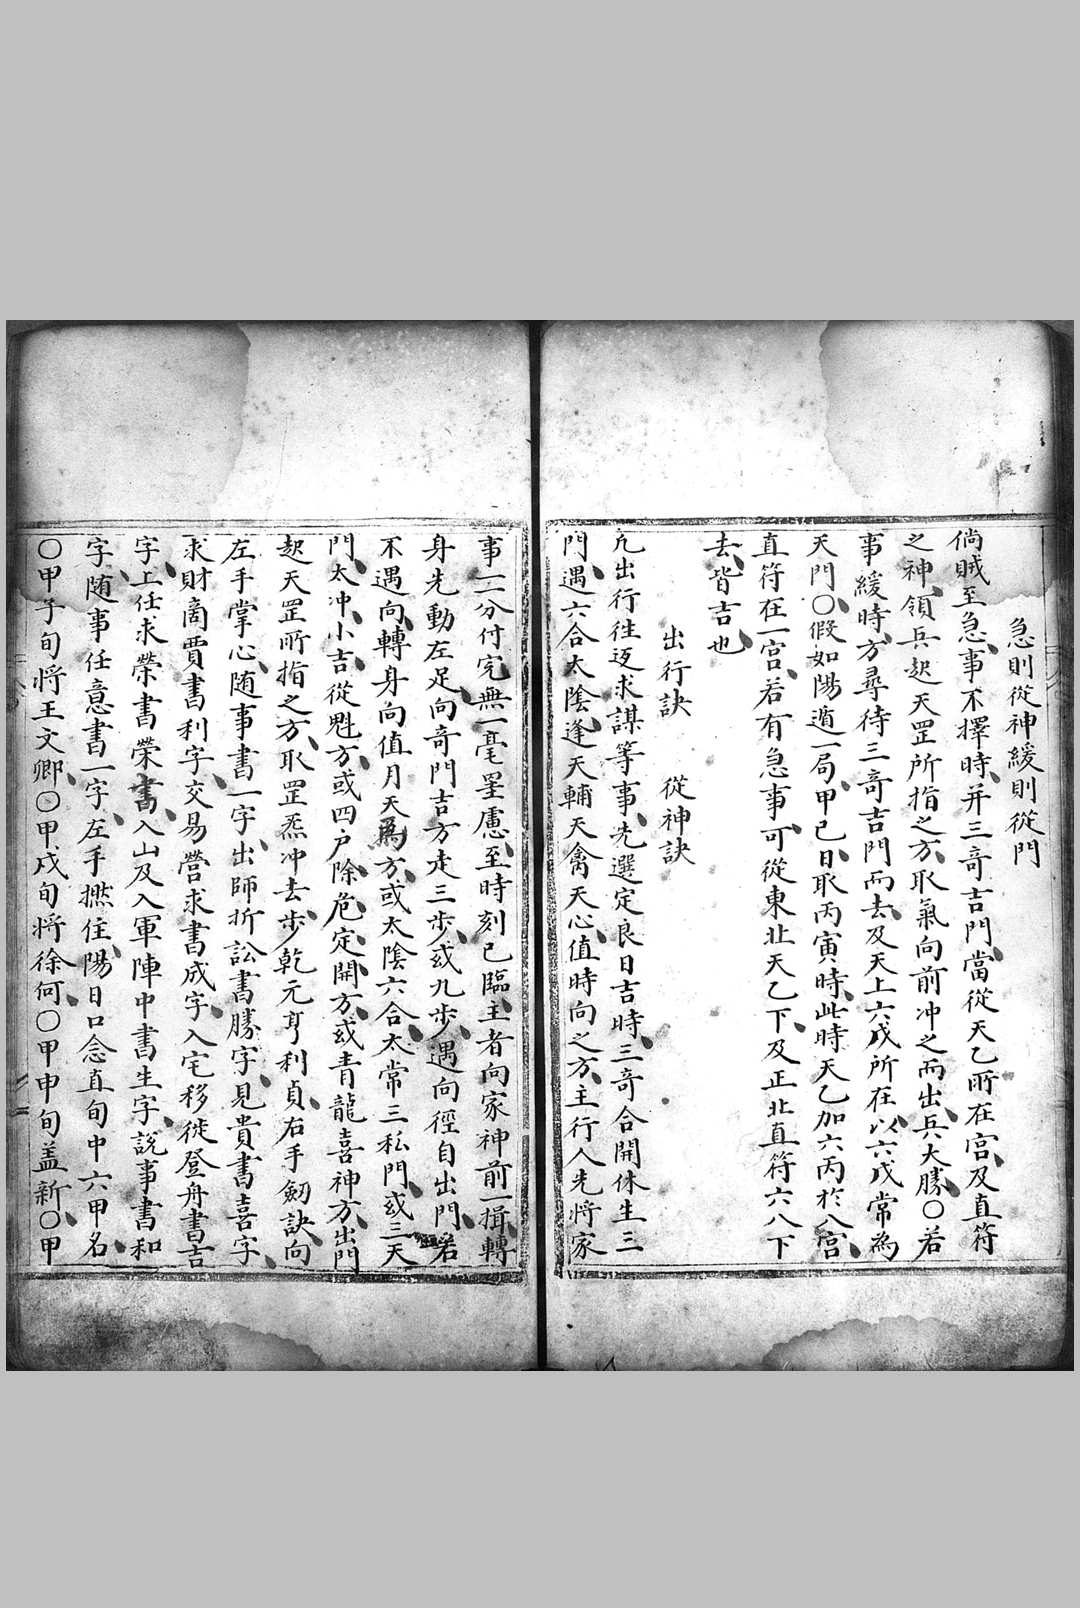 急則從神緩則從門
倘賊至急、事不擇時、并三竒吉門、當從天乙所在宫、及直符
之神、領兵、起天罡所指之方、取氣向前冲之而出、兵大勝、〇若
事緩時方尋待三竒吉門而去、及天上六戊所在、以六戊常為
天門、〇假如陽遁一局、甲己日、取丙寅時、此時天乙加六丙於八宫、
直符在一宫、若有急事可從東北天乙下、及正北直符六八下
去、皆吉也、
出行訣 從神訣
凢出行往返求謀等事、先選定良日吉時、三竒合開休生三
門、遇六合太陰、逢天輔天禽天心、值時向之方、主行人先将家
事一一分付完、無一毫罣慮、至時刻已臨、主者向家神前一揖、轉
身先動左足、向竒門吉方走三步、或九步、遇向徑自出門、若
不遇向、轉身向值月天為方、或太陰六合太常三私門、或三天
門、太冲、小吉、從魁方、或四户除危定開方、或青龍喜神方、出門
起天罡所指之方、取罡炁冲去、步乾元亨利貞、右手劒訣向
左手掌心、随事書一字、出師折訟書勝字、見貴書喜字、
求財啇賈書利字、交易營求書成字、入宅移徙登舟書吉
字、上任求榮書榮書、入山及入軍陣中書生字、說事書和
字、随事任意書一字、左手撚住、陽日口念直旬中六甲名、
〇甲子旬将王文卿、〇甲戌旬将徐何、〇甲申旬盖新、〇甲